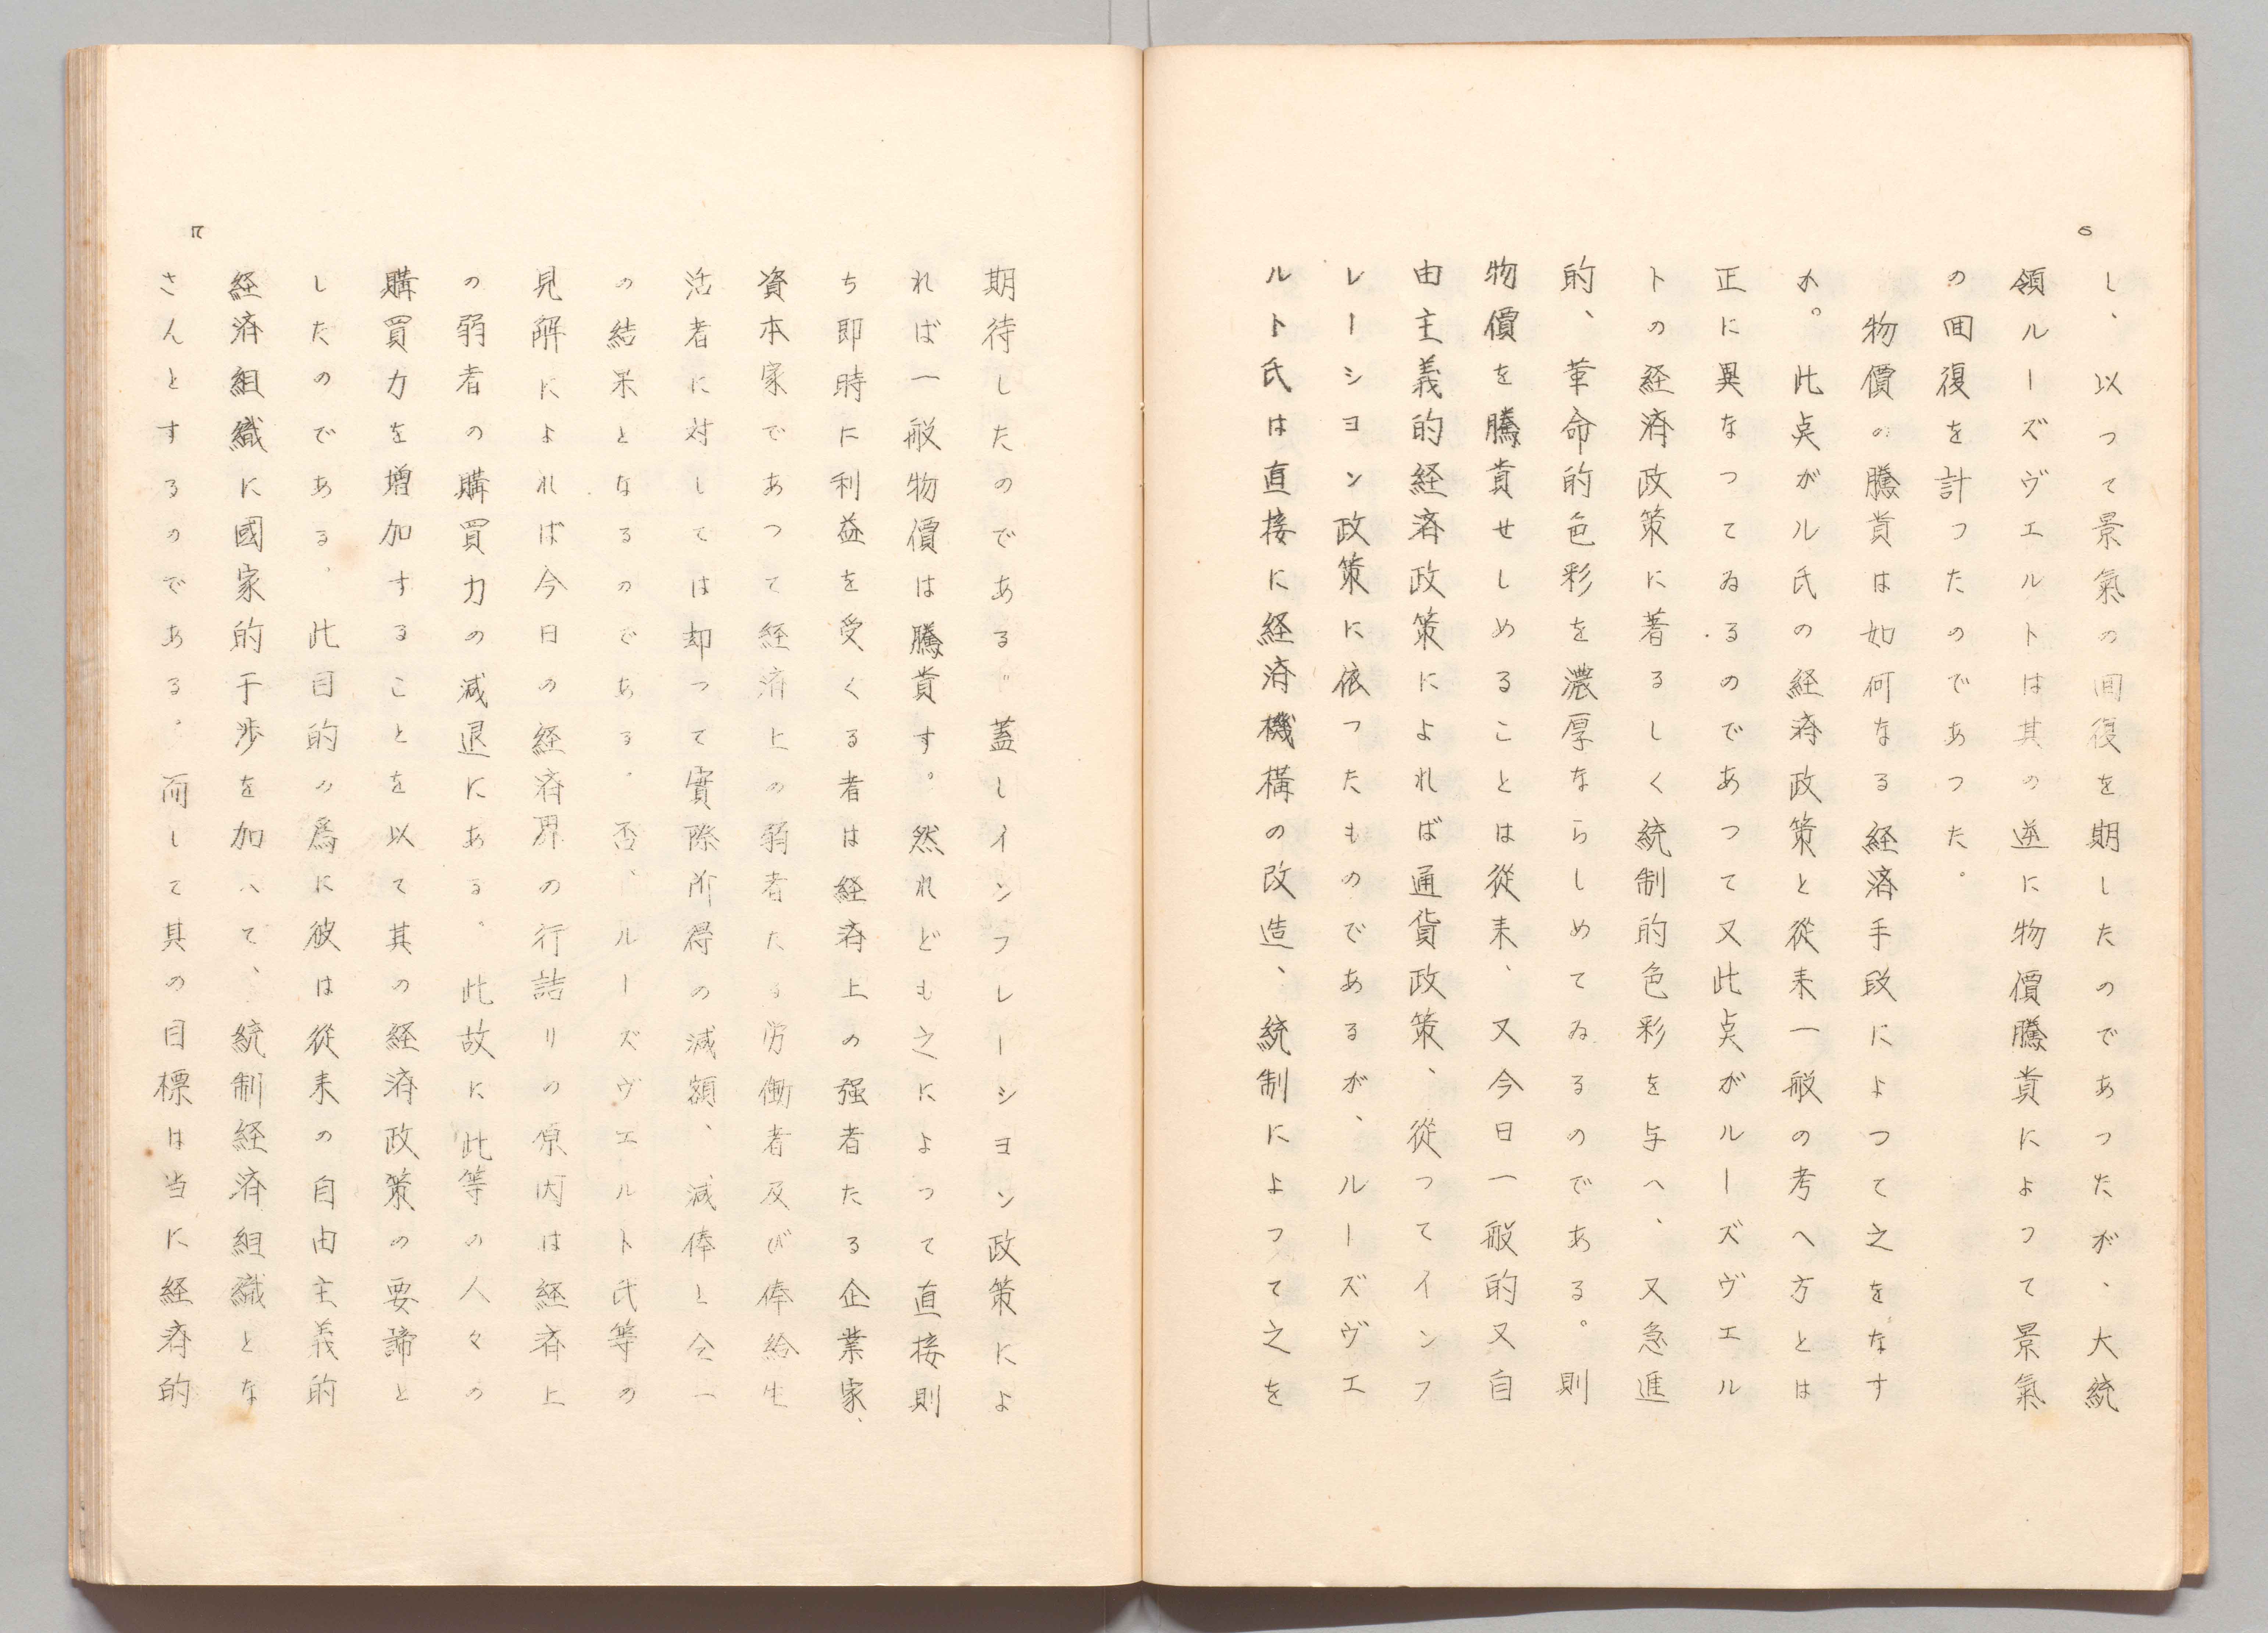 6
し、以つて景氣の囬復を期したのであつたが、大統
領ルーズヴエルトは其の逆に物價騰貴によつて景氣
の囬復を計つたのであつた。
物價の騰貴は如何なる経済手段によつて之をなす
か。此点がル氏の経済政策と從来一般の考へ方とは
正に異なつてゐるのであつて又此点がルーズヴエル
トの経済政策に著るしく統制的色彩を与へ、又急進
的、革命的色彩を濃厚ならしめてゐるのである。則
物價を騰貴せしめることは從来、又今日一般的又自
由主義的経済政策によれば通貨政策、從つてインフ
レーシヨン政策に依つたものであるが、ルーズヴエ
ルト氏は直接に経済機構の改造、統制によつて之を
7
期待したのである。蓋しインフレーシヨン政策によ
れば一般物價は騰貴す。然れども之によつて直接則
ち即時に利益を受くる者は経済上の强者たる企業家、
資本家であつて経済上の弱者たる労働者及び俸給生
活者に対しては却つて實際所得の減額、減俸と仝一
の結果となるのである。否、ルーズヴエルト氏等の
見解によれば今日の経済界の行詰リの原因は経済上
の弱者の購買力の減退にある。此故に此等の人々の
購買力を増加することを以て其の経済政策の要諦と
したのである。此目的の爲に彼は從来の自由主義的
経済組織に國家的干渉を加へて、統制経済組織とな
さんとするのである。而して其の目標は当に経済的